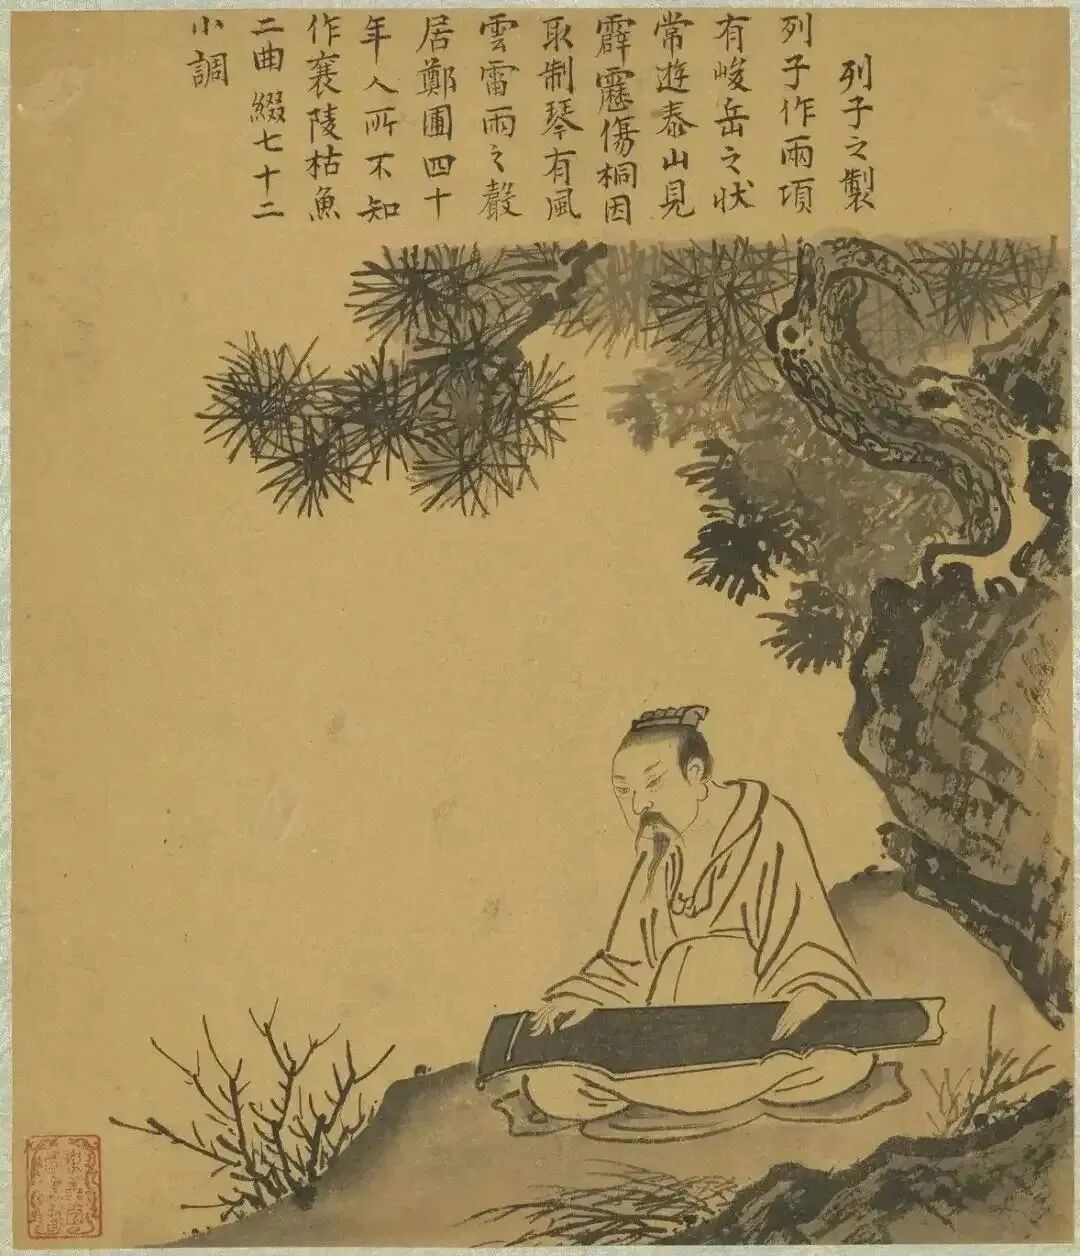 列子之製
列子作兩項
有峻岳之狀
常遊泰山見
霹靂傷桐因
取制琴有風
雲雷雨之聲
居鄭圃四十
年人所不知
作襄陵枯魚
二曲綴七十二
小調